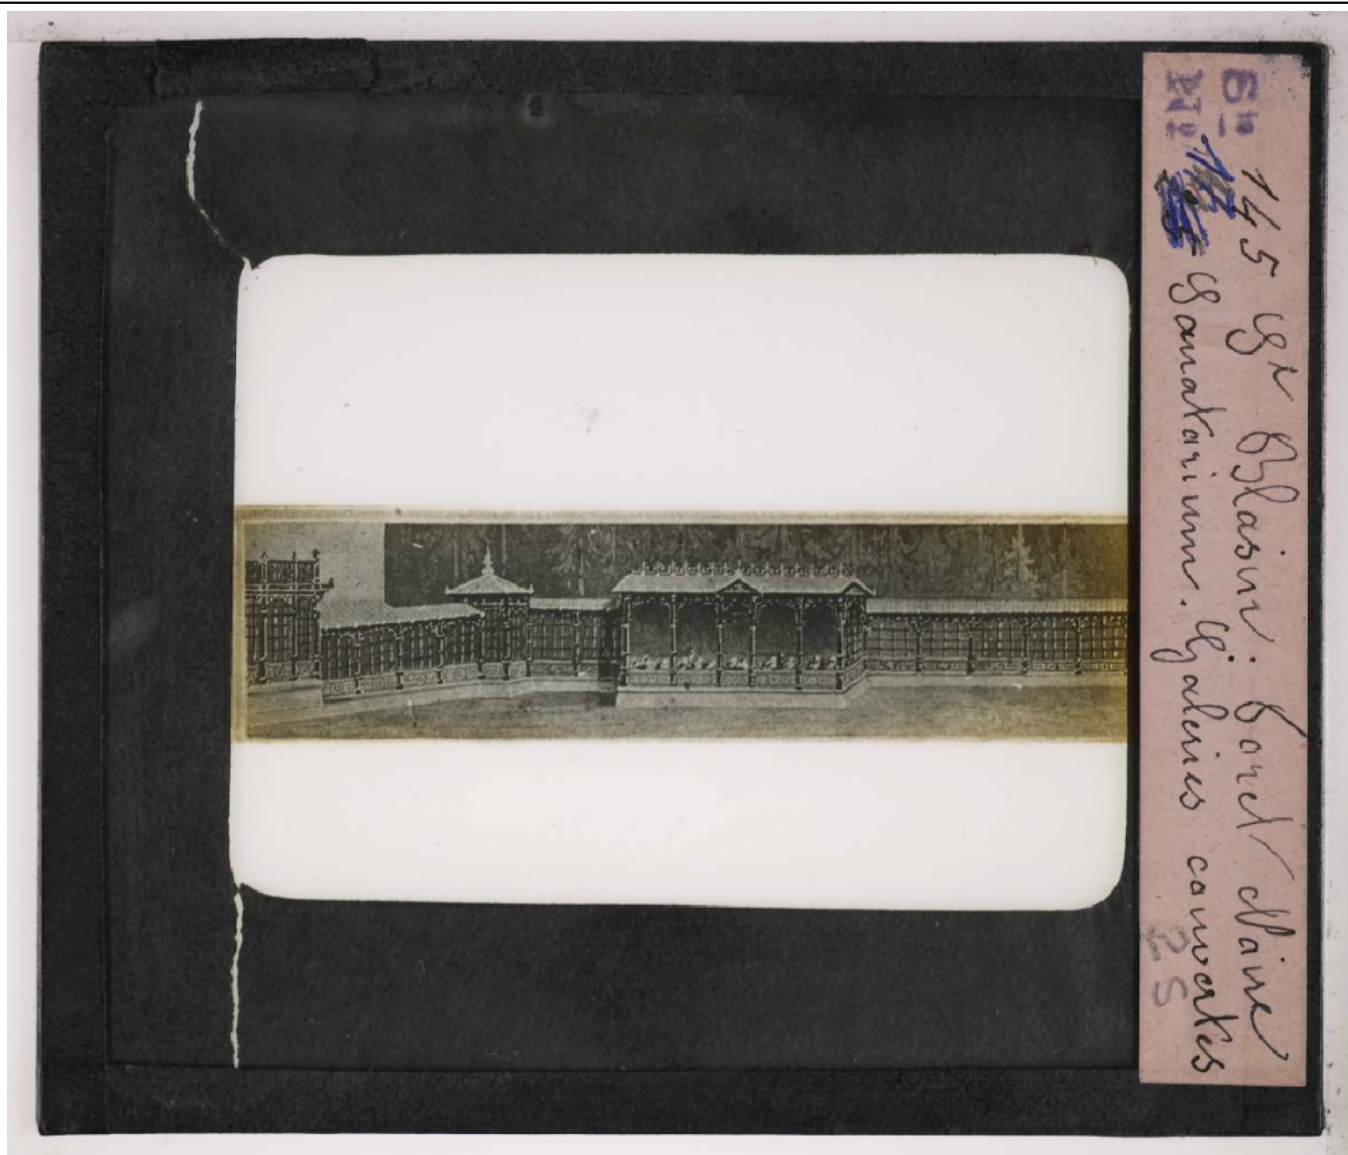 Sie 145 St Blasin. Foret Noire
No 17 Sanatorium. Galeries couvertes
2S